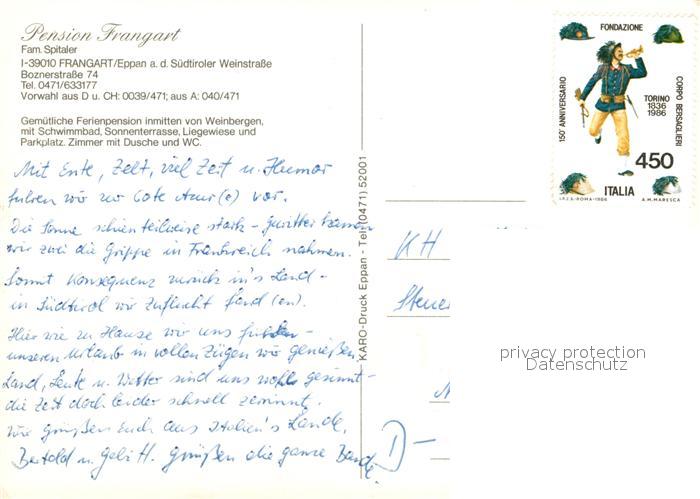 Pension Frangart
Fam. Spitaler
I-39010 FRANGART/Eppan a. d. Südtiroler Weinstraße
Boznerstraße 74
Tel. 0471/633177
Vorwahl aus D u. CH: 0039/471; aus A: 040/471
Gemütliche Ferienpension inmitten von Weinbergen,
mit Schwimmbad, Sonnenterrasse, Liegewiese und
Parkplatz. Zimmer mit Dusche und WC.
Mit Ente, Zelt, viel Zeit u. Humor
fuhren wir zur Cote Azur(e) vor.
Die Sonne schien teilweise stark -
wir zwei die Grippe in Frankreich nahmen.
Somit Konsequenz zurück in's Land -
in Südtirol wir Zuflucht fand(en).
Hier wie zu Hause wir uns
unseren Urlaub in vollen Zügen wir genießen,
Land, Leute u. Wetter sind uns wohl gesinnt -
die Zeit doch leider schnell zerrinnt.
Wir grüßen Euch aus Italien's Lande,
Bertold u. Gabi H. grüßen die ganze Bande.
KARO-Druck Eppan - Tel. (0471) 52001
FONDAZIONE
150° ANNIVERSARIO
CORPO BERSAGLIERI
TORINO
1836
1986
450
ITALIA
I.P.Z.S.-ROMA-1986
A.M. MARESCA
KH
Steue
D-
privacy protection
Datenschutz